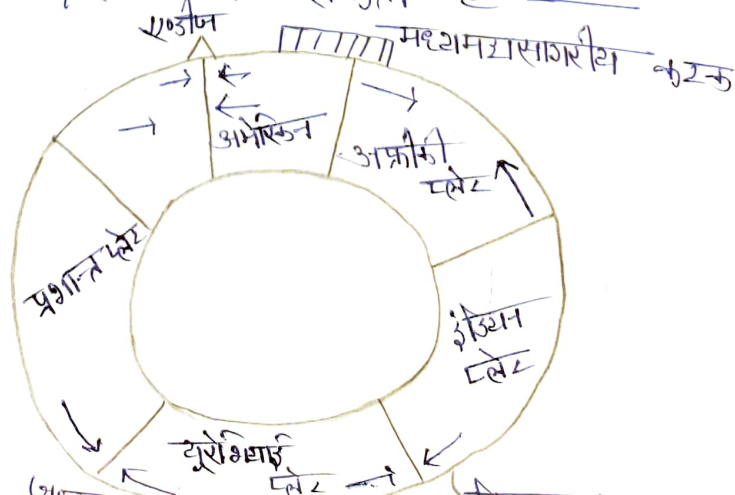 एण्डीज
मध्यमहासागरीय कटक
अमेरिकन
अफ्रीकी
प्लेट
प्रशान्त प्लेट
इंडियन
प्लेट
यूरेशियाई
प्लेट